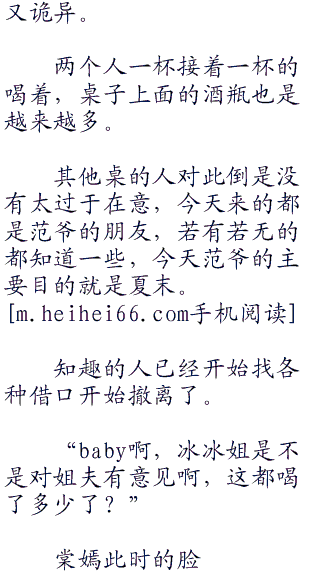 又诡异。
两个人一杯接着一杯的
喝着，桌子上面的酒瓶也是
越来越多。
其他桌的人对此倒是没
有太过于在意，今天来的都
是范爷的朋友，若有若无的
都知道一些，今天范爷的主
要目的就是夏末。
[m.heihei66.com手机阅读]
知趣的人已经开始找各
种借口开始撤离了。
“baby啊，冰冰姐是不
是对姐夫有意见啊，这都喝
了多少了？”
棠嫣此时的脸